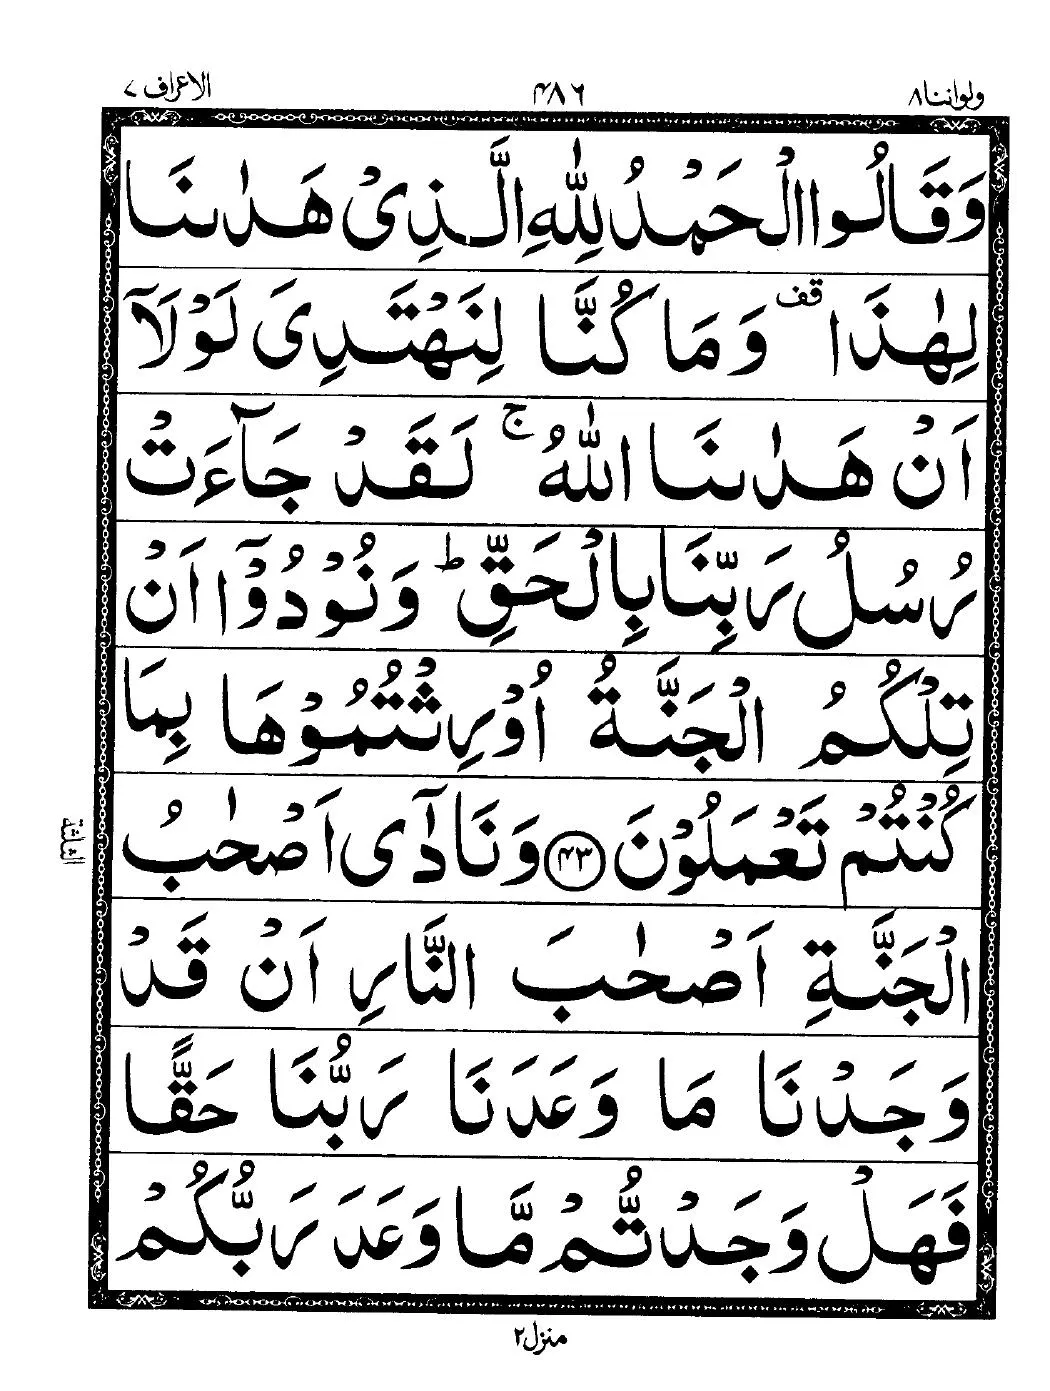 ولواننا ۸ ۴۸۶ الاعراف ۷
وَقَالُوا الْحَمْدُ لِلّٰهِ الَّذِیْ هَدٰىنَا
لِهٰذَا ۫ قف وَمَا كُنَّا لِنَهْتَدِیَ لَوْلَاۤ
اَنْ هَدٰىنَا اللّٰهُ ۚ لَقَدْ جَآءَتْ
رُسُلُ رَبِّنَا بِالْحَقِّ ؕ وَنُوْدُوْۤا اَنْ
تِلْكُمُ الْجَنَّةُ اُوْرِثْتُمُوْهَا بِمَا
كُنْتُمْ تَعْمَلُوْنَ ۴۳ وَنَادٰۤی اَصْحٰبُ
الْجَنَّةِ اَصْحٰبَ النَّارِ اَنْ قَدْ
وَجَدْنَا مَا وَعَدَنَا رَبُّنَا حَقًّا
فَهَلْ وَجَدْتُّمْ مَّا وَعَدَ رَبُّكُمْ
الثلثة
منزل ۲